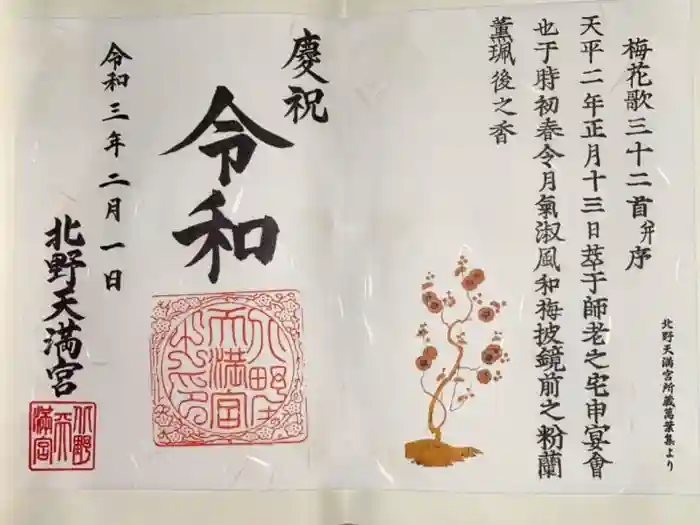 梅花歌三十二首并序
天平二年正月十三日萃于師老之宅申宴會
也于時初春令月氣淑風和梅披鏡前之粉蘭
薫珮後之香
北野天満宮所蔵萬葉集より
慶祝
令和
令和三年二月一日
北野天満宮
北野
天
満宮